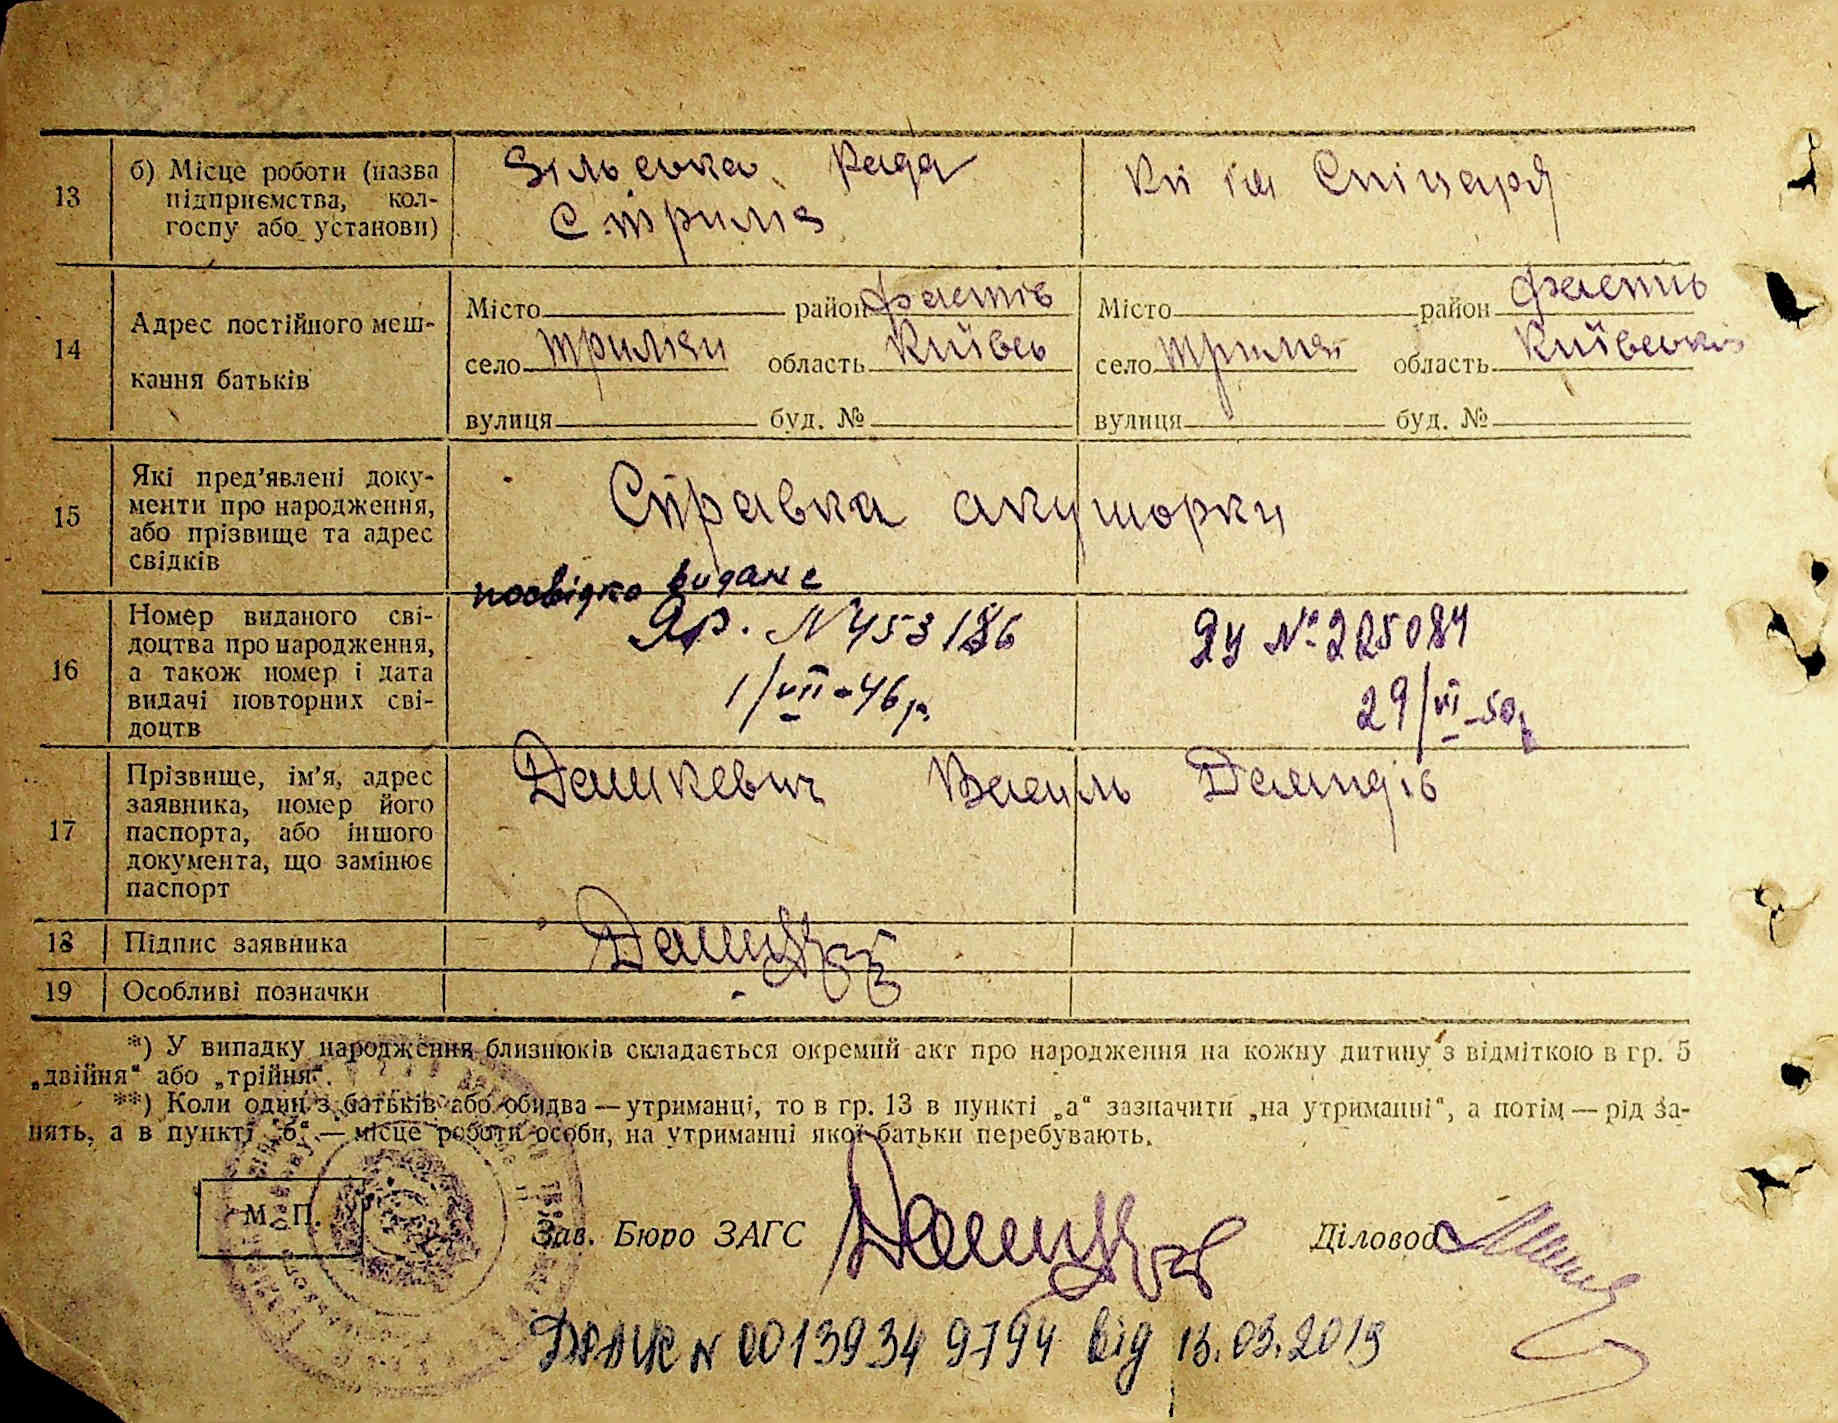 13
б) Місце роботи (назва
підприємства, кол-
госпу або установи)
Сільська Рада
С. Триліs
К-п ім Спіцаря
14
Адрес постійного меш-
кання батьків
Місто район Фастів
село Триліси область Київсь
вулиця буд. №
Місто район Фастів
село область Київської
вулиця буд. №
15
Які пред’явлені доку-
менти про народження,
або прізвище та адрес
свідків
Справка акушорки
16
Номер виданого сві-
доцтва про народження,
а також номер і дата
видачі повторних сві-
доцтв
посвідка видане
ЯР. № 453186
1/VII-46 р.
ЯУ № 225084
29/VI-50р
17
Прізвище, ім’я, адрес
заявника, номер його
паспорта, або іншого
документа, що замінює
паспорт
Дашкевич Василь
18
Підпис заявника
19
Особливі позначки
*) У випадку народження близнюків складається окремий акт про народження на кожну дитину з відміткою в гр. 5
„двійня“ або „трійня“.
**) Коли один з батьків або обидва — утриманці, то в гр. 13 в пункті „а“ зазначити „на утриманні“, а потім — рід за-
нять, а в пункті „б“ — місце роботи особи, на утриманні якої батьки перебувають.
М. П.
Зав. Бюро ЗАГС
Діловод
N 00139349794 від 13.03.2019